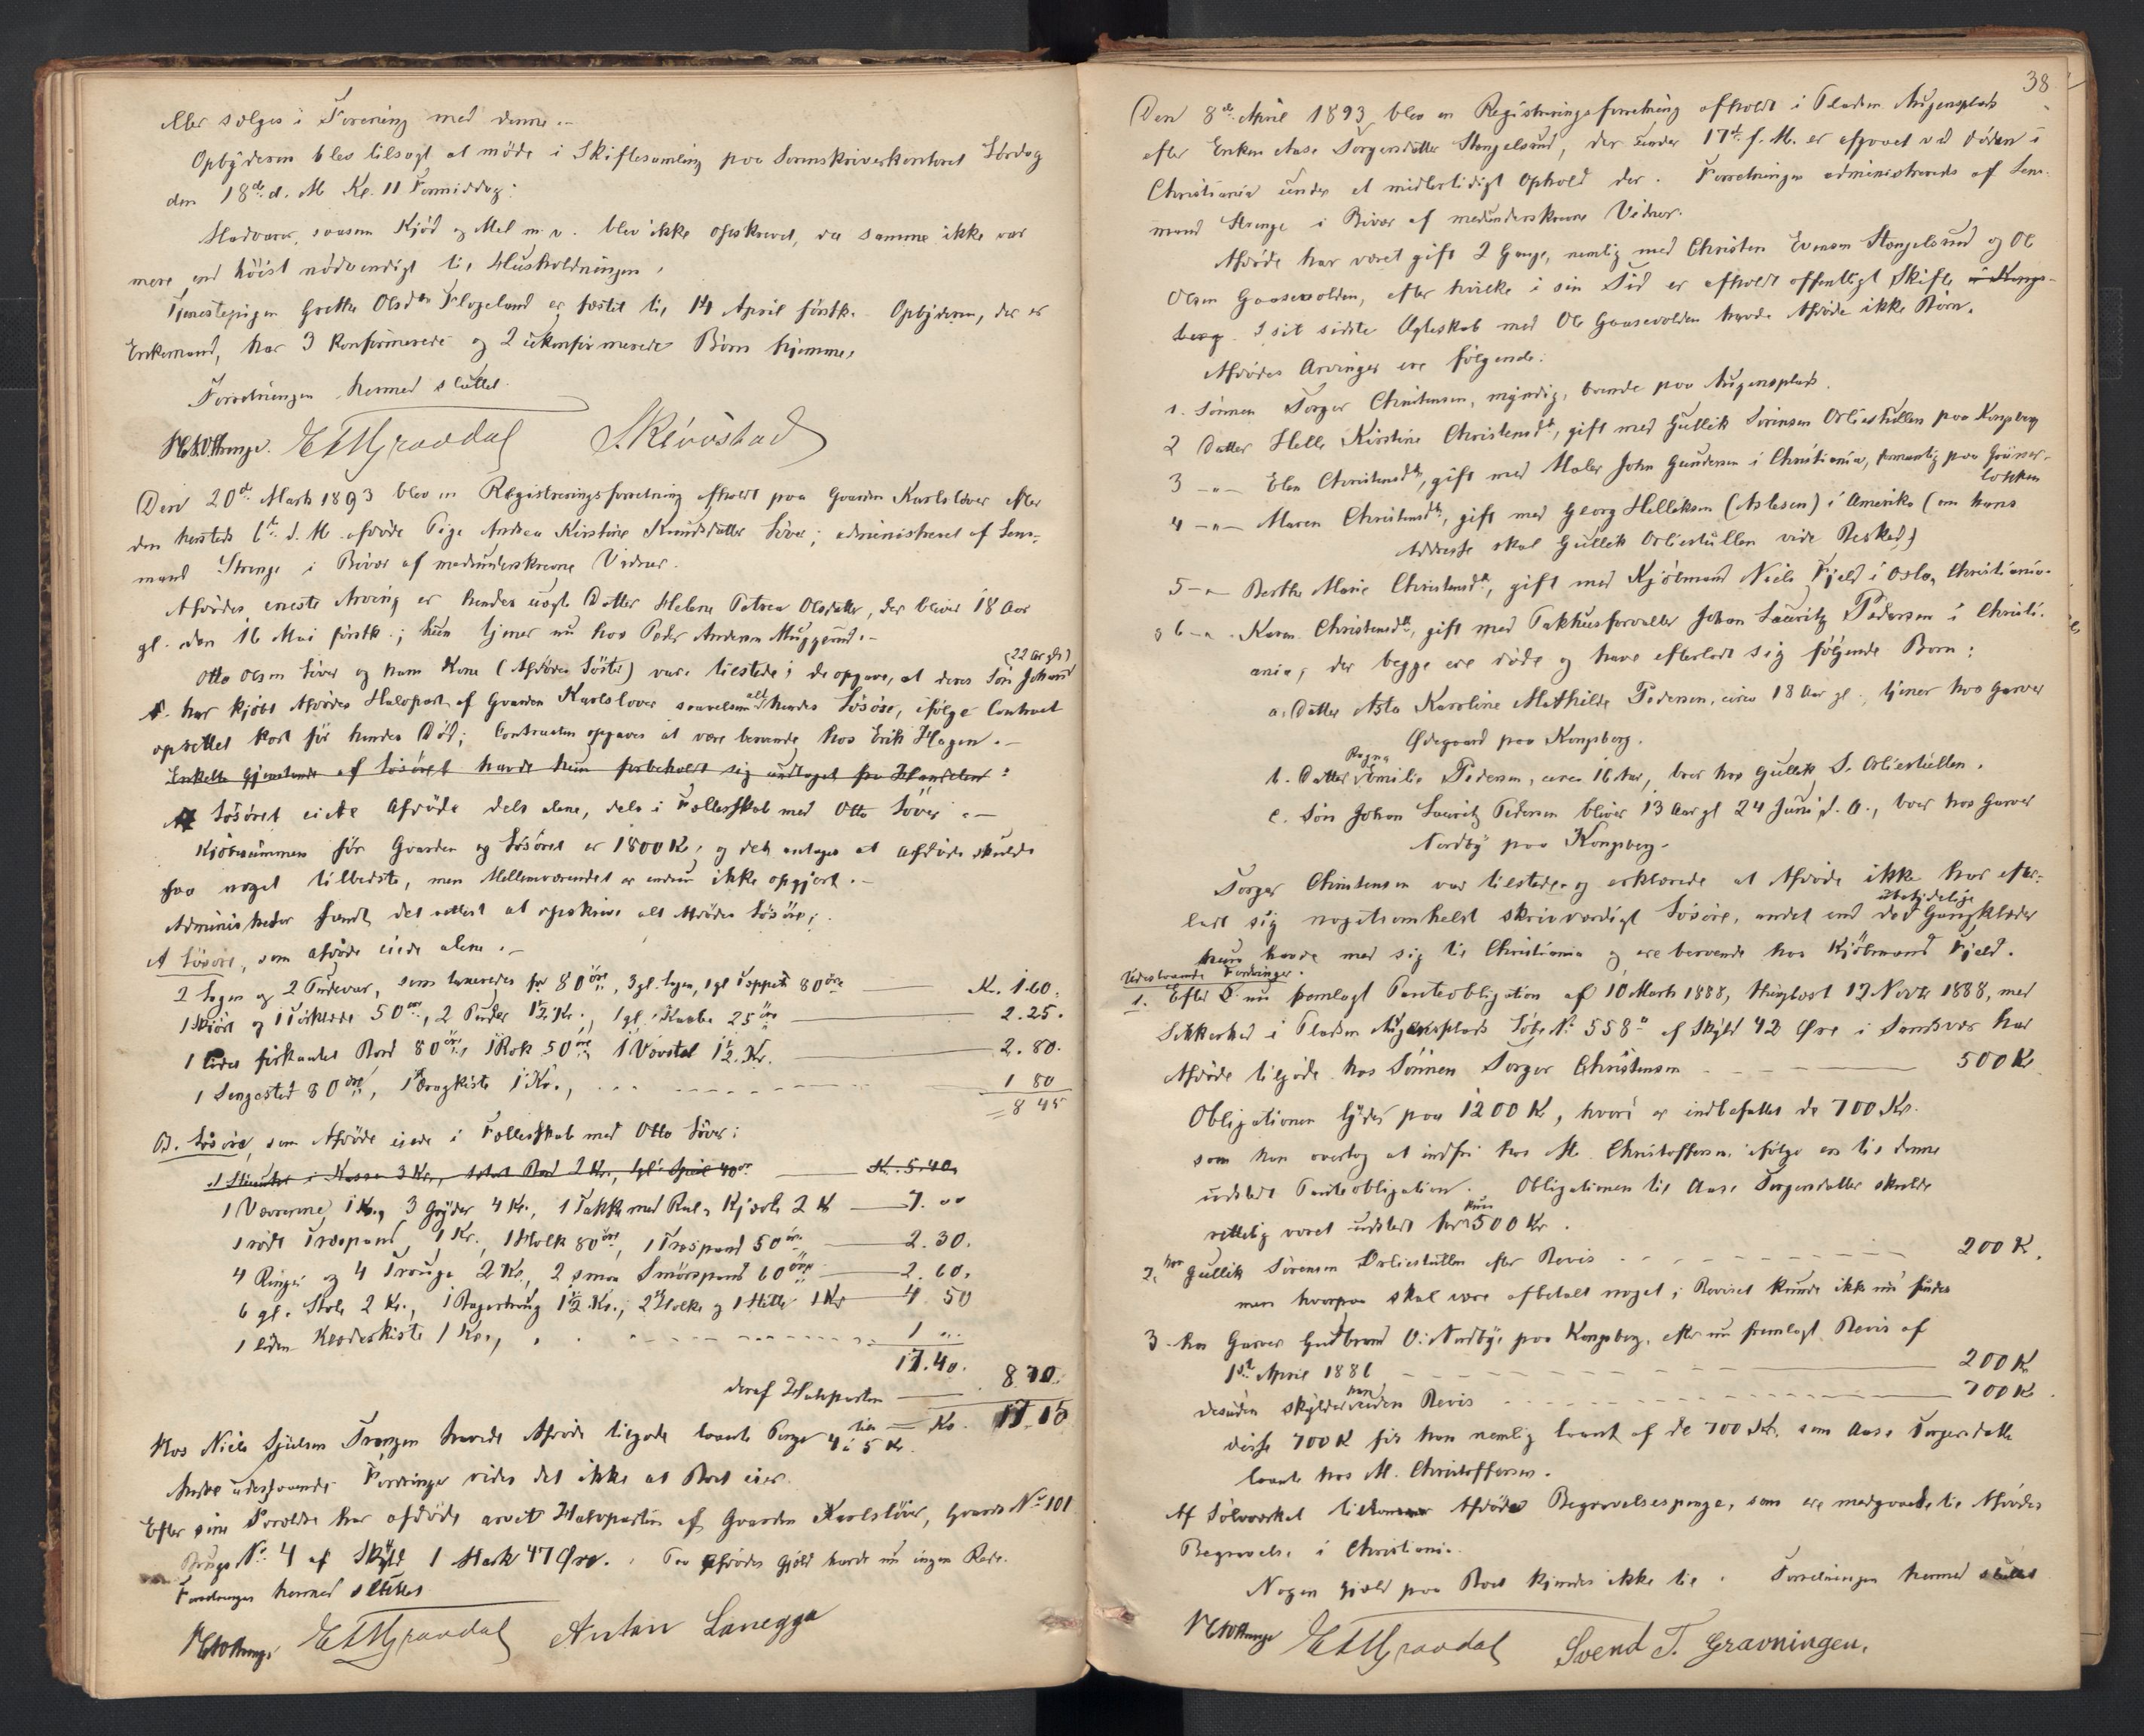 eller sælges i Forening med denne. –
Opbyderen blev tilsagt at møde i Skiftesamling paa Sorenskriverkontoret Lørdag
den 18de d. M. Kl. 11 Formiddag:
Madvarer, saasom Kjød og Mel m. v. blev ikke opskrevet, da samme ikke var
mere end høist nødvendigt til Husholdningen.
Tjenestepigen Grethe Olsdtr Flageland er fæstet til 14 April førstk. Opbyderen, der er
Enkemand, har 3 konfirmerede og 2 ukonfirmerede Børn hjemme.
Forretningen hermed sluttet.
E A Graadal
Den 20de Marts 1893 blev en Registreringsforretning afholdt paa Gaarden Karlsløver efter
den hersteds 6te d. M. afdøde Pige Andrea Kirstine Amundsdatter Løver; administreret af Lens-
mand Strenge i Bivær af medunderskrevne Vidner.
Afdødes eneste Arving er hendes uægte Datter Helene Petrea Olsdatter, der bliver 18 Aar
gl. den 16 Mai førstk.; hun tjener nu hos Peder Andersen Muggerud. –
Otto Olsen Løver og hans Kone (Afdødes Søster) vare tilstede; de opgave, at deres Søn Johand (22 Aar gl.)
har kjøbt Afdødes Halvpart af Gaarden Karlsløver saavelsom alt hendes Løsøre, ifølge Contract
oprettet kort før hendes Død; Contracten opgaves at være beroende hos Erik Hagen. –
Enkelte Gjenstande af Løsøret havde hun forbeholdt sig undtaget fra Handelen:
Løsøret eiede Afdøde dels alene, dels i Fællesskab med Otto Løver. –
Kjøbesummen for Gaarden og Løsøret er 1800 Kr. og det antages at Afdøde skulde
faa noget tilbedste, men Mellemværendet er endnu ikke opgjort. –
Administrator fandt det rettest at opskrive alt Afdødes Løsøre;
A Løsøre, som afdøde eiede alene. –
2 Lagen og 2 Pudevar, som taxeredes for 80 øre, 3 gl. Lagen, 1 gl Teppet 80 øre — K. 1.60.
1 Skjørt og 1 Forklæde 50 øre, 2 Puder 1½ Kr., 1 gl. Kaabe 25 øre — 2.25.
1 lidet firkantet Bord 80 øre, 1 Rok 50 øre, 1 Vævstol 1½ Kr. — 2.80.
1 Sengested 80 øre, 1 Dragkiste 1 Kr., — 1 80
= 8 45
B. Løsøre, som Afdøde eiede i Fællesskab med Otto Løver:
K. 5.40.
1 Væverene 1 Kr., 3 Gryder 4 Kr., 1 Takke med Rul & Kjævle 2 K — 7. 00
1 rødt Træspand 1 Kr., 1 Holk 80 øre, 1 Træspand 50 øre — 2.30.
4 Ringer og 4 Trauge 2 Kr., 2 smaa Smørspand 60 øre — 2.60.
6 gl. Stole 2 Kr., 1 Bagertraug 1½ Kr., 2 Holke og 1 Hille 1 Kr — 4. 50
1 liden Klædeskiste 1 Kr., — 1 „
17.40.
deraf Halvparten — 8.70.
= Kr. 17.15
Hos Niels Sjulsen Trangen havde Afdøde tilgode laante Penge 4 til 5 Kr.
Andre udestaaende Fordringer vides det ikke at Boet eier.
Efter sine Forældre har afdøde arvet Halvparten af Gaarden Karlsløver, Gaards No 101
Brugs No 4 af Skyld 1 Mark 47 Øre. Paa Afdødes Gjæld havde nu ingen Rede.
Forretningen hermed sluttet
E A Graadal Anton Lanegga
38
Den 8de April 1893 blev en Registreringsforretning afholdt i Pladsen Augensplads
efter Enken Aase Torgersdatter Stengelsrud, der under 17de f. M. er afgaaet ved Døden i
Christiania under et midlertidigt Ophold der. Forretningen administreredes af Lens-
mand Strenge i Bivær af medunderskrevne Vidner.
Afdøde har været gift 2 Gange, nemlig med Christen Evensen Stengelsrud og Ole
Olsen Gaasevolden, efter hvilke i sin Tid er afholdt offentligt Skifte i Kongs-
berg. I sit sidste Ægteskab med Ole Gaasevolden havde Afdøde ikke Børn.
Afdødes Arvinger ere følgende:
1. Sønnen Torger Christensen, myndig, boende paa Augensplads.
2 Datter Helle Kirstine Christensdtr, gift med Gullik Sørensen Orliestullen paa Kongsberg
3 – „ – Elen Christensdtr, gift med Maler John Gundersen i Christiania, formentlig paa Grüner-
løkken
4 – „ – Maren Christensdtr, gift med Georg Helleksen (Aslesen) i Amerika (om hans
Addresse skal Gullik Orliestullen vide Besked)
5 – „ Berthe Marie Christensdtr, gift med Kjøbmand Niels Fjeld i Oslo, Christiania.
6 – „ – Karen Christensdtr, gift med Pakhusforvalter Johan Lauritz Pedersen i Christi-
ania, der begge ere døde og have efterladt sig følgende Børn:
a. Datter Asta Karoline Mathilde Pedersen, circa 18 Aar gl., tjener hos Garver
Ødegaard paa Kongsberg.
b. Datter Ragna Emilie Pedersen, circa 16 Aar, boer hos Gullik S. Orliestullen.
c. Søn Johan Lauritz Pedersen bliver 13 Aar gl 24 Juni d. A., boer hos Garver
Nordby paa Kongsberg.
Torger Christensen var tilstede og erklærede at Afdøde ikke har efter-
ladt sig nogetsomhelst skrivværdigt Løsøre, andet end de ubetydelige Gangklæder
hun havde med sig til Christiania og ere beroende hos Kjøbmand Fjeld.
Udestaaende Fordringer.
1. Efter nu fremlagt Panteobligation af 10 Marts 1888, thinglæst 12 Novbr 1888, med
Sikkerhed i Pladsen Augensplads Løbe No 558a af Skyld 42 Øre i Sandsvær har
Afdøde tilgode hos Sønnen Torger Christensen — 500 Kr
Obligationen lyder paa 1200 Kr, hvori er indbefattet de 700 Kr.
som han overtog at indfri hos M. Christoffersen ifølge en til denne
udstedt Panteobligation. Obligationen til Aase Torgersdatter skulde
rettelig været udstedt for kun 500 Kr.
2. hos Gullik Sørensen Orliestullen efter Bevis — 200 K.
men hvorpaa skal være afbetalt noget; Beviset kunde ikke nu findes
3. hos Garver Gudbrand O. Nordbye paa Kongsberg, efter nu fremlagt Bevis af
1ste April 1886 — 200 K
desuden skylder han uden Bevis — 700 K
disse 700 K fik han nemlig laant af de 700 Kr. som Aase Torgersdatter
laante hos M. Christoffersen.
Af Sølvværket tilkommer Afdøde Begravelsespenge, som ere medgaaede til Afdødes
Begravelse i Christiania.
Nogen Gjæld paa Boet kjendes ikke til. Forretningen hermed sluttet
E A Graadal Svend T. Gravningen.